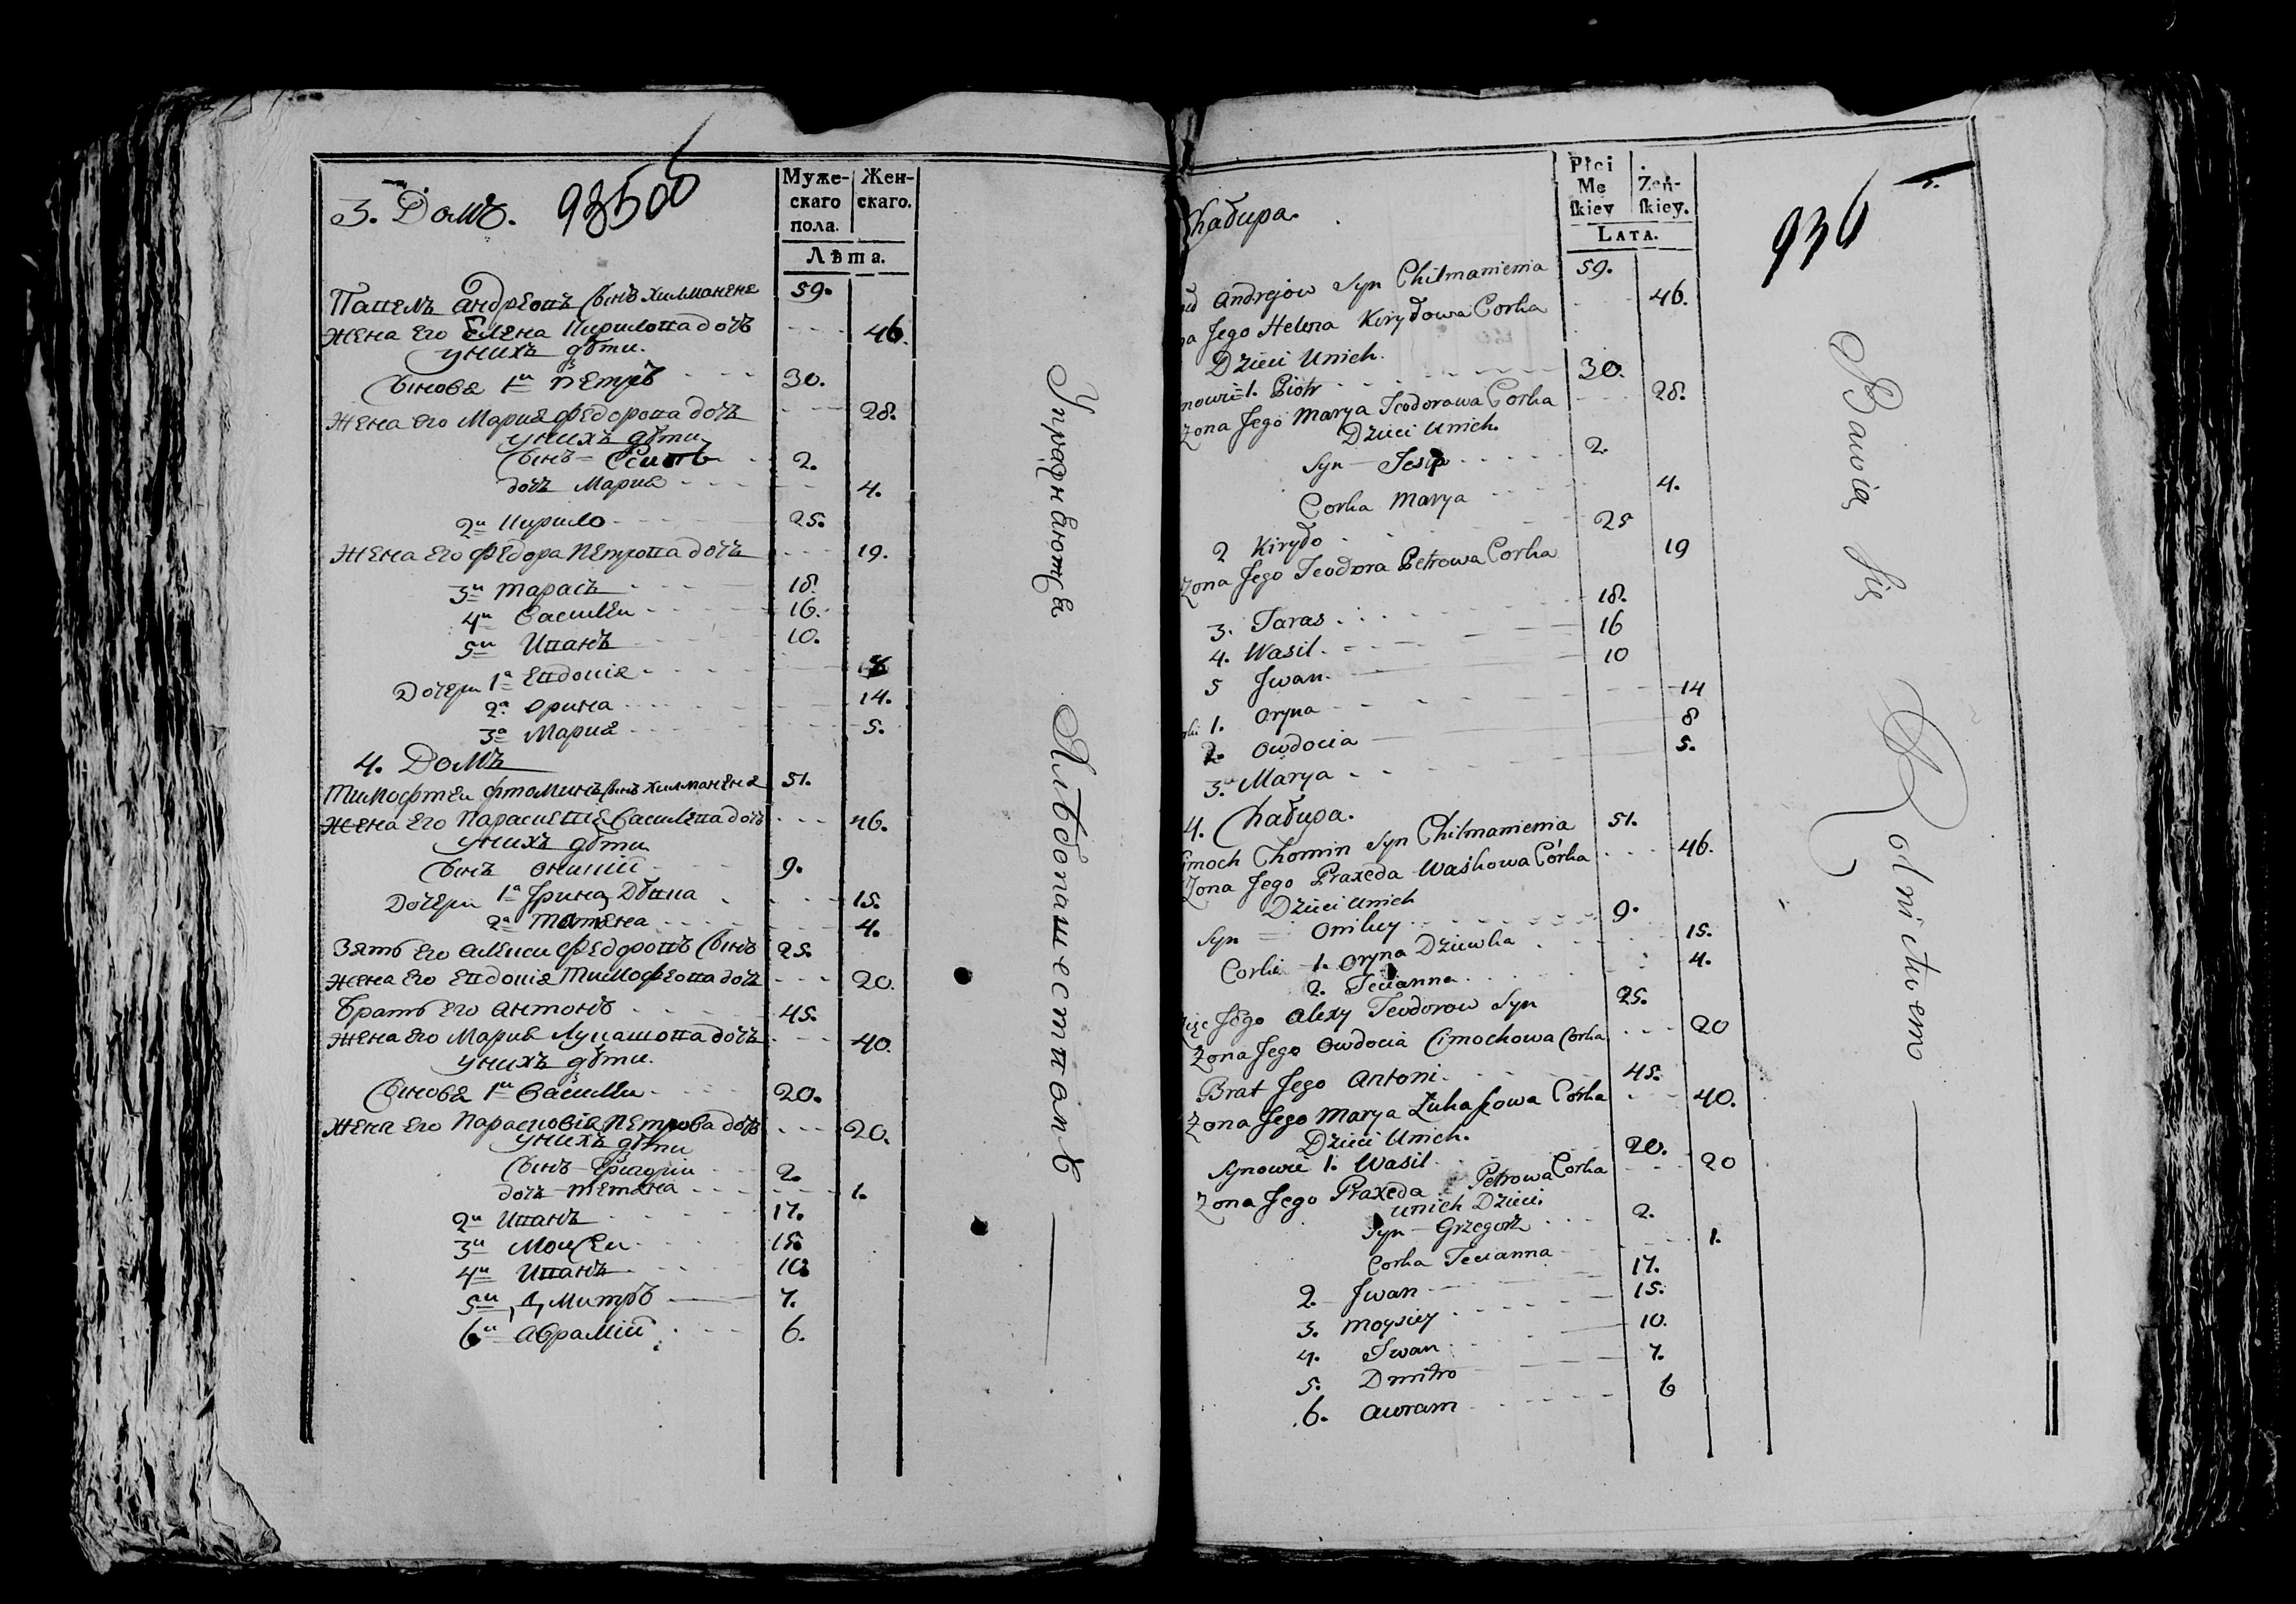 3. Домъ. 935об
Муже-
скаго
пола.
Жен-
скаго.
Лѣта.
Павелъ Андреовъ сынъ хилманеня 59.
жена его Елена Кирилова дочь 46.
у нихъ дѣти.
сыновя 1й Петръ 30.
жена его Мария Федорова дочь 28.
у нихъ дѣти
сынъ 2.
дочь Мария 4.
2й Кирило 25.
жена его Федора Петрова дочь 19.
3й Тарасъ 18.
4й Василеи 16.
5й Иванъ 10.
Дочери 1а Евдокія
2а Орина 14.
3а Мария 5.
4. Домъ
Тимофтеи Фтоминъ сынъ хилманеня 51.
жена его Параскевие Василева дочь 46.
у нихъ дѣти
сынъ Оникій 9.
Дочери 1а Ірина Дѣвка 15.
2а Татяна 4.
Зять его Алекси Федоровъ сынъ 25.
жена его Евдокія Тимофеова дочь 20.
Братъ его Антонъ 45.
жена его Мария Лукашова дочь 40.
у нихъ дѣти.
сыновя 1й Василеи 20.
жена его Парасковія Петрова дочь 20.
у нихъ дѣти
сынъ Григории 2.
дочь Тетяна 1.
2й Иванъ 17.
3й Моисеи 15.
4й Иванъ 10.
5й Дмитръ 7.
6й Абрамій 6.
Упражняются Хлѣбопашествомъ
Chałupa.
Płci
Mę
skiey
Żeń-
skiey.
LATA.
936
Andrejow Syn Chilmanienia 59.
Jego Helena Kiryłowa Corka 46.
Dzieci Unich.
1. Piotr 30.
Zona Jego Marya Teodorowa Corka 28.
Dzieci Unich.
Syn — Josip 2.
Corka Marya 4.
2 Kiryło 25
Zona Jego Teodora Petrowa Corka 19
3. Taras 18.
4. Wasil 16
5 Jwan 10
1. Oryna 14
2. Owdocia 8
3. Marya 5.
4. Chałupa.
Chomin Syn Chilmanienia 51.
Zona Jego Praxeda Waśkowa Córka 46.
Dzieci unich
Syn = Onikiy 9.
Corki 1. Oryna Dziewka 15.
2. Tecianna 4.
Jego Alexy Teodorow Syn 25.
Zona Jego Owdocia Cimochowa Corka 20
Brat Jego Antoni 45.
Zona Jego Marya Łukaszowa Córka 40.
Dzieci Unich.
Synowie 1. Wasil 20.
Zona Jego Praxeda Petrowa Corka 20
unich Dzieci
Syn — Grzegorz 2.
Corka Tecianna 1.
2. Jwan 17.
3. Moysiey 15.
4. Iwan 10.
5. Dmitro 7.
6. Awram 6
Bawią się Rolnictwem